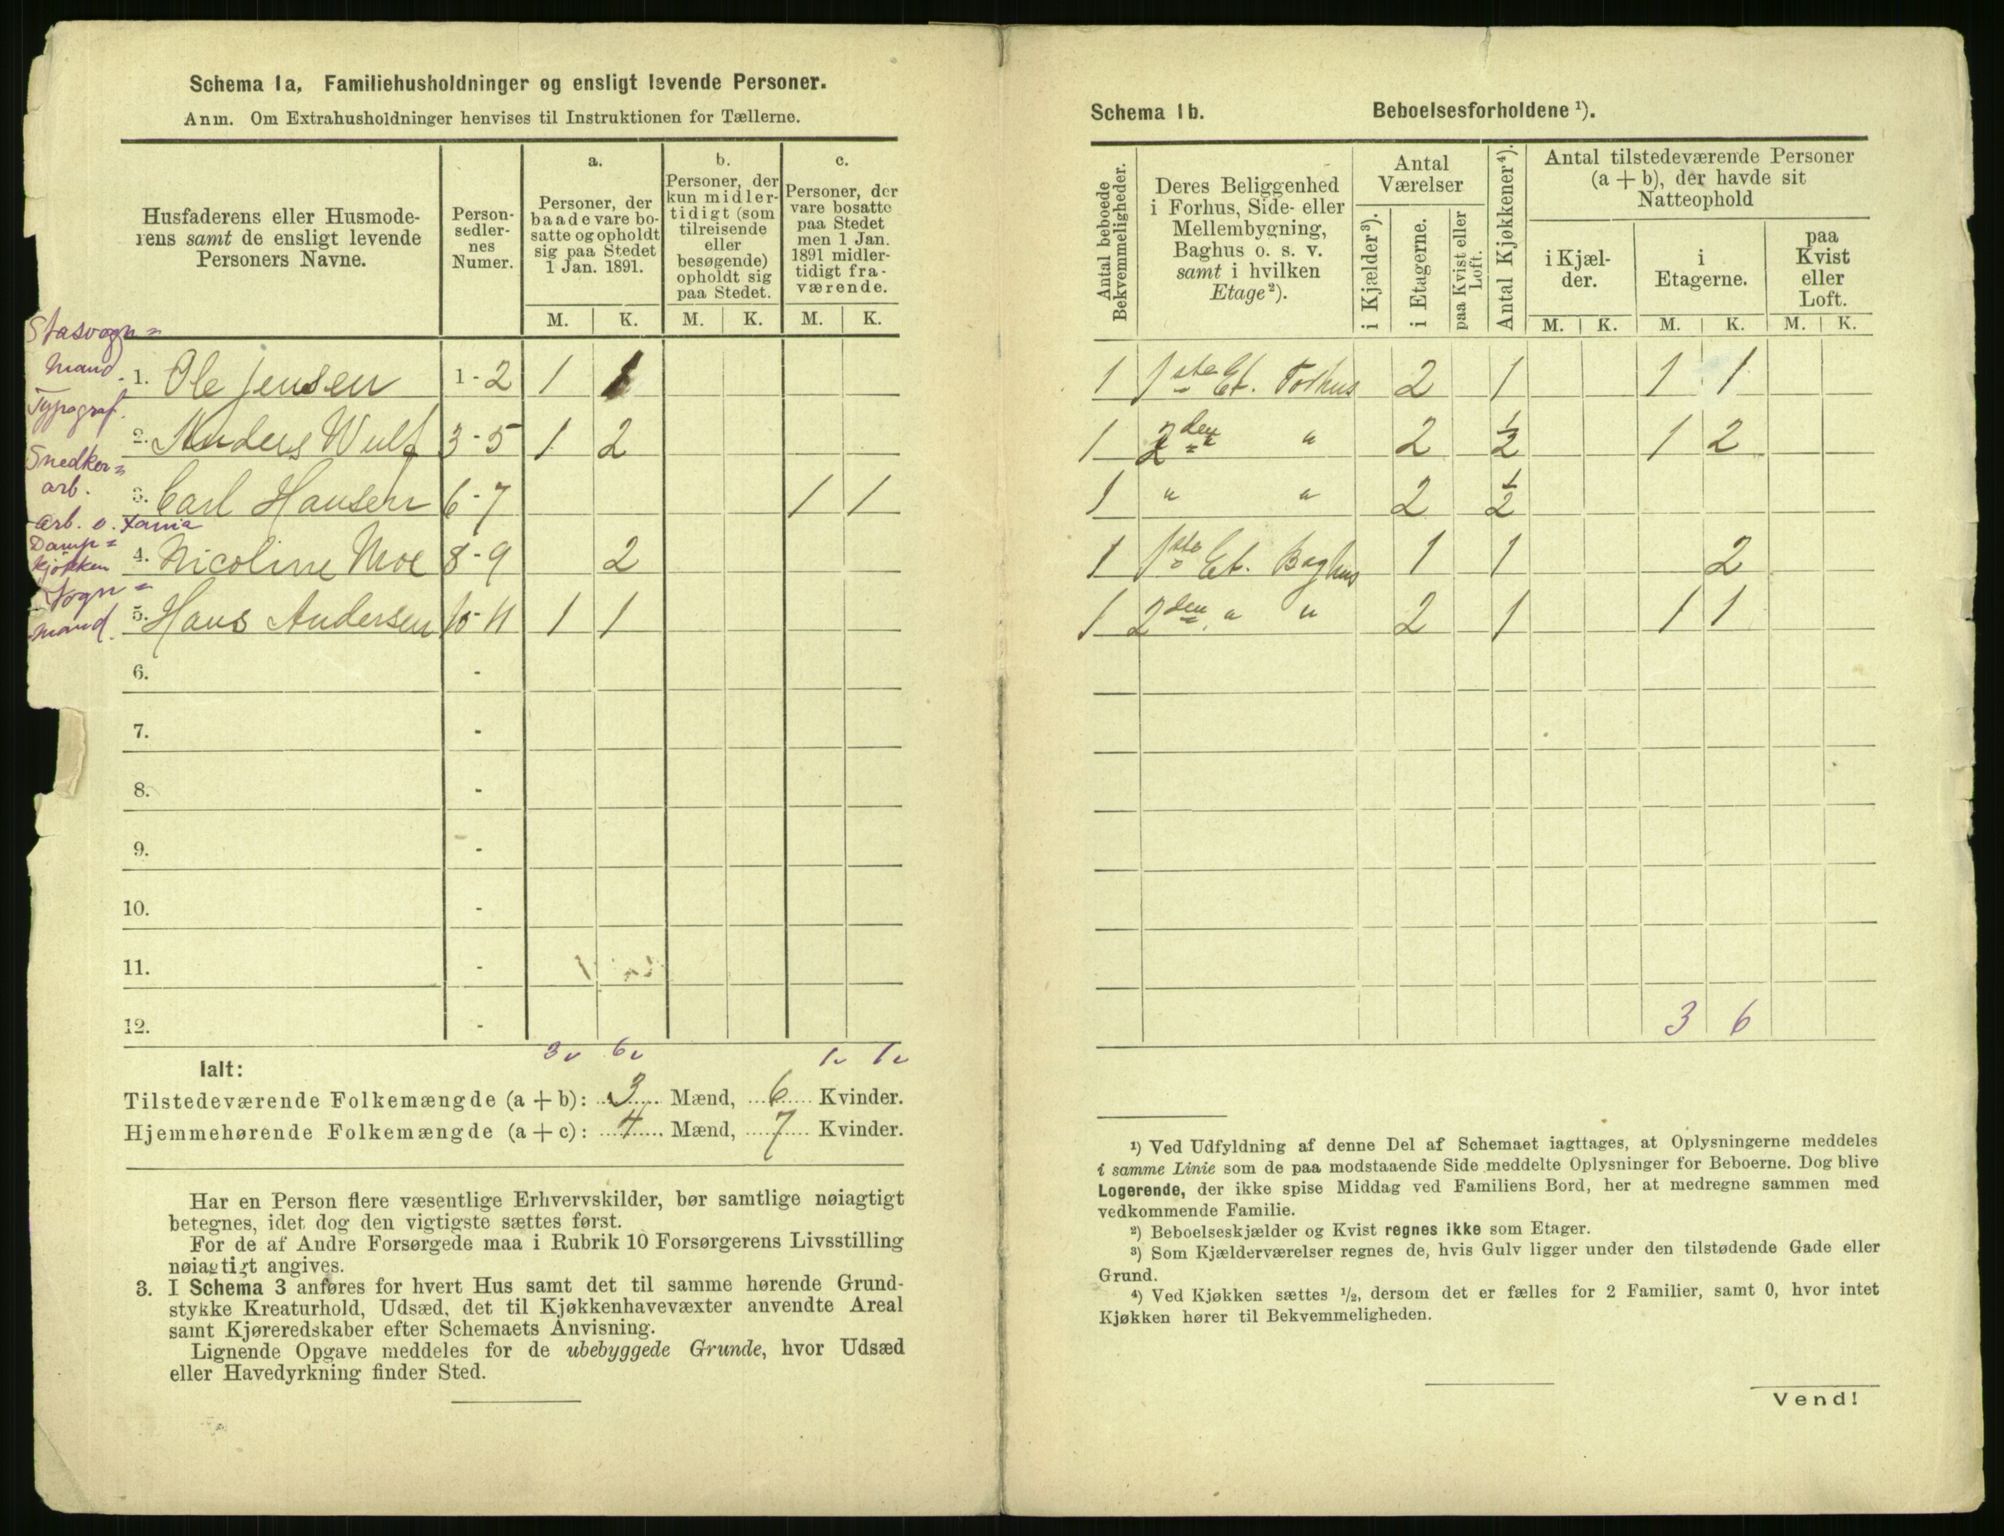 Schema 1a, Familiehusholdninger og ensligt levende Personer.
Anm. Om Extrahusholdninger henvises til Instruktionen for Tællerne.
Husfaderens eller Husmode-
rens samt de ensligt levende
Personers Navne.
Person-
sedler-
nes
Numer.
a.
Personer, der
baade vare bo-
satte og opholdt
sig paa Stedet
1 Jan. 1891.
b.
Personer, der
kun midler-
tidigt (som
tilreisende
eller
besøgende)
opholdt sig
paa Stedet.
c.
Personer, der
vare bosatte
paa Stedet
men 1 Jan.
1891 midler-
tidigt fra-
værende.
M. K. M. K. M. K.
Stasvogn=
mand. 1. Ole Jensen 1-2 1 1
Typograf. 2. Anders Wulf 3-5 1 2
Snedker=
arb. 3. Carl Hansen 6-7 1 1
arb. v. Xania
Damp=
kjøkken 4. Nicoline Moe 8-9 2
Vogn=
mand. 5. Hans Andersen 10-11 1 1
6. -
7. -
8. -
9. -
10. -
11. -
12. -
3v 6v 1v 1v
Ialt:
Tilstedeværende Folkemængde (a + b): 3 Mænd, 6 Kvinder.
Hjemmehørende Folkemængde (a + c): 4 Mænd, 7 Kvinder.
Har en Person flere væsentlige Erhvervskilder, bør samtlige nøiagtigt
betegnes, idet dog den vigtigste sættes først.
For de af Andre Forsørgede maa i Rubrik 10 Forsørgerens Livsstilling
nøiagtigt angives.
3. I Schema 3 anføres for hvert Hus samt det til samme hørende Grund-
stykke Kreaturhold, Udsæd, det til Kjøkkenhavevæxter anvendte Areal
samt Kjøreredskaber efter Schemaets Anvisning.
Lignende Opgave meddeles for de ubebyggede Grunde, hvor Udsæd
eller Havedyrkning finder Sted.
Schema 1b. Beboelsesforholdene ¹).
Antal beboede
Bekvemmeligheder.
Deres Beliggenhed
i Forhus, Side- eller
Mellembygning,
Baghus o. s. v.
samt i hvilken
Etage²).
Antal
Værelser
i Kjælder³).
i Etagerne.
paa Kvist eller
Loft.
Antal Kjøkkener⁴).
Antal tilstedeværende Personer
(a + b), der havde sit
Natteophold
i Kjæl-
der.
i
Etagerne.
paa
Kvist
eller
Loft.
M. K. M. K. M. K.
1 1ste Et. Forhus 2 1 1 1
1 2den " 2 1/2 1 2
1 " " 2 1/2
1 1ste Et. Baghus 1 1 2
1 2den " " 2 1 1 1
3 6
¹) Ved Udfyldning af denne Del af Schemaet iagttages, at Oplysningerne meddeles
i samme Linie som de paa modstaaende Side meddelte Oplysninger for Beboerne. Dog blive
Logerende, der ikke spise Middag ved Familiens Bord, her at medregne sammen med
vedkommende Familie.
²) Beboelseskjælder og Kvist regnes ikke som Etager.
³) Som Kjælderværelser regnes de, hvis Gulv ligger under den tilstødende Gade eller
Grund.
⁴) Ved Kjøkken sættes ½, dersom det er fælles for 2 Familier, samt 0, hvor intet
Kjøkken hører til Bekvemmeligheden.
Vend!